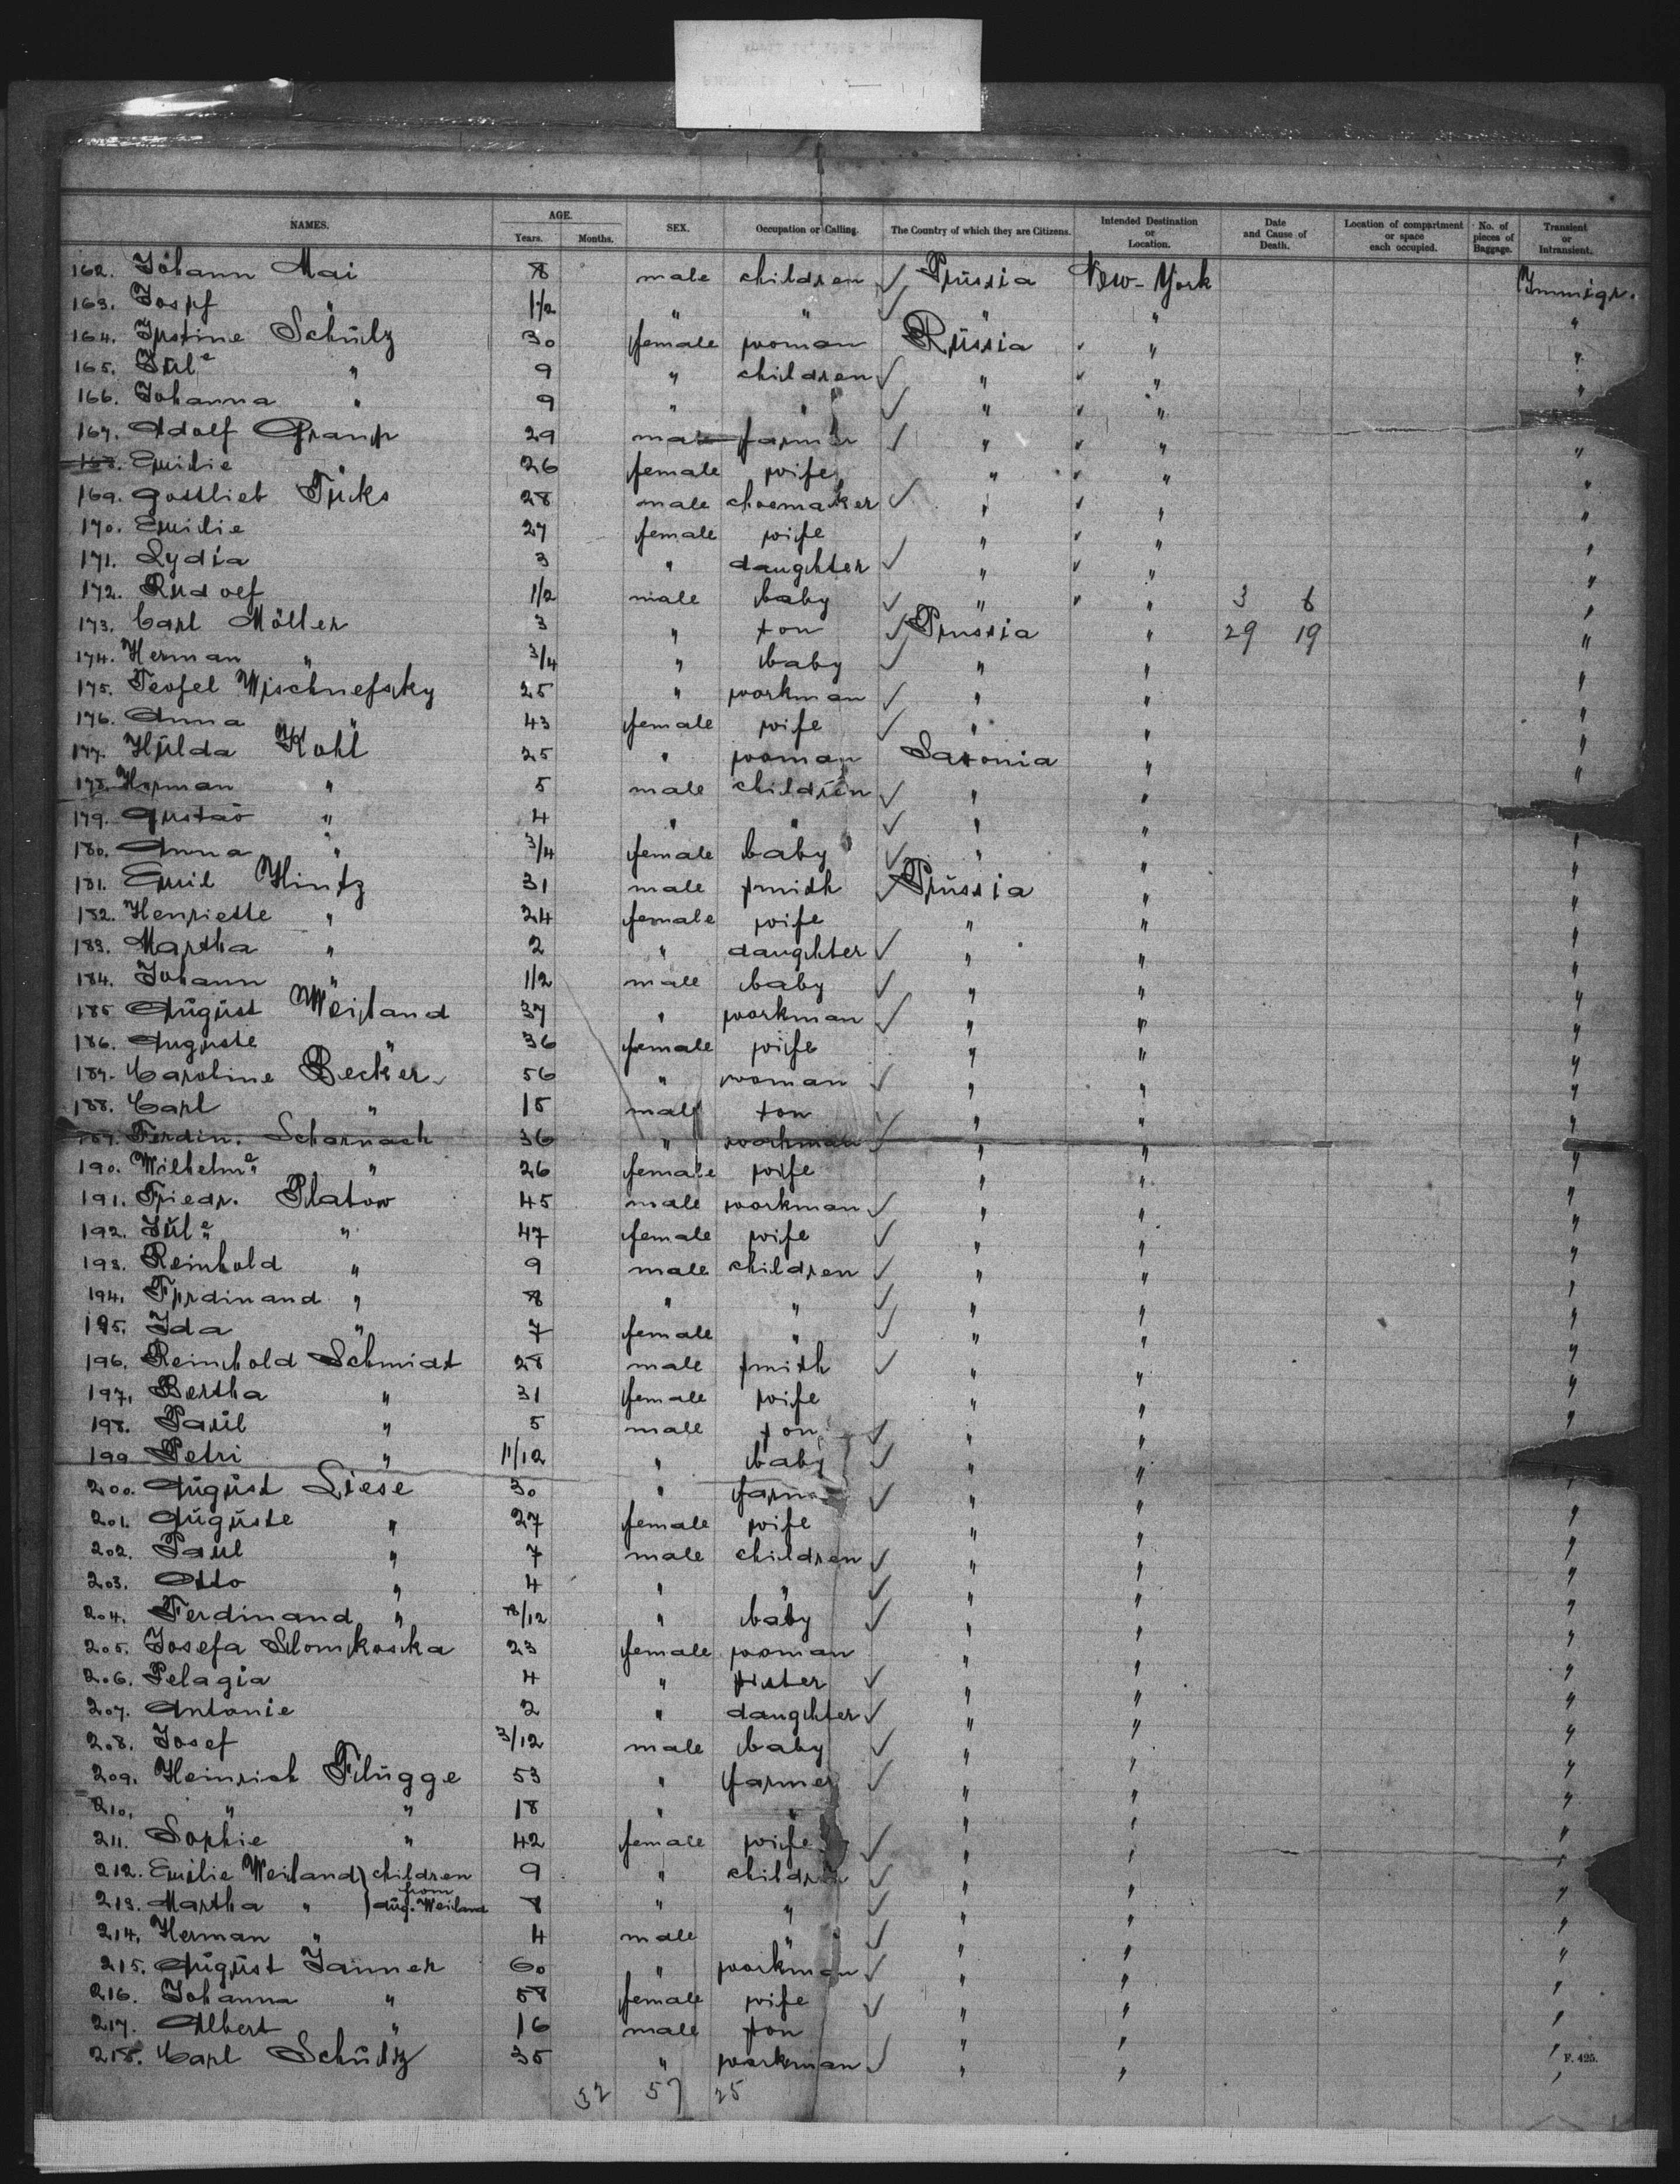 NAMES. AGE. Years. Months. SEX. Occupation or Calling. The Country of which they are Citizens. Intended Destination or Location. Date and Cause of Death. Location of compartment or space each occupied. No. of pieces of Baggage. Transient or Intransient.
162. Johann Mai 8 male children ✓ Prüssia New-York Immigr.
163. Josef " 1½ " " ✓ " " "
164. Justine Schülz 30 female woman Rüssia " "
165. Jül^e " 9 " children ✓ " " "
166. Johanna " 9 " " ✓ " "
167. Adolf Gramp 29 male farmer ✓ " " "
168. Emilie " 26 female wife " " "
169. Gottlieb Fuks 28 male choemaker ✓ " " "
170. Emilie 27 female wife " " "
171. Lydia 3 " daughter ✓ " " "
172. Rudolf 1/2 male baby ✓ " " 3 6 "
173. Carl Möller 3 " son ✓ Prussia " 29 19 "
174. Herman " 3/4 " baby ✓ " " "
175. Teofel Wischnefsky 25 " workman ✓ " " "
176. Anna " 43 female wife ✓ " " "
177. Hülda Kohl 25 " woman Saxonia " "
178. Herman " 5 male children ✓ " "
179. Gustav " 4 " " ✓ " " "
180. Anna " 3/4 female baby ✓ " " "
181. Emil Hintz 31 male smith ✓ Prüssia " "
182. Henriette " 24 female wife " " "
183. Martha " 2 " daughter ✓ " " "
184. Johann " 1/2 male baby ✓ " " "
185. Aügüst Weiland 37 " workman ✓ " " "
186. Auguste " 36 female wife " " "
187. Caroline Becker 56 " woman ✓ " " "
188. Carl " 15 male son ✓ " "
189. Ferdin. Scharnack 36 " workman ✓ " " "
190. Wilhelm^e " 26 female wife " " "
191. Friedr. Platow 45 male workman ✓ " " "
192. Jül^e " 47 female wife ✓ " " "
193. Reinhold " 9 male children ✓ " " "
194. Ferdinand " 8 " " ✓ " " "
195. Ida " 7 female " ✓ " " "
196. Reinhold Schmidt 28 male smith ✓ " " "
197. Bertha " 31 female wife " " "
198. Paül " 5 male son ✓ " "
199 Petri " 11/12 " baby ✓ " " "
200. Aügüst Liese 30 " farm ✓ " " "
201. Aügüste " 27 female wife " " "
202. Paul " 7 male children ✓ " " "
203. Otto " 4 " " ✓ " " "
204. Ferdinand " 8/12 " baby ✓ " " "
205. Josefa Slomkoska 23 female woman " " "
206. Pelagia 4 " sister ✓ " " "
207. Antonie 2 " daughter ✓ " " "
208. Josef 3/12 male baby ✓ " " "
209. Heinrich Flügge 53 " farmer ✓ " " "
210. " " 18 " " " " "
211. Sophie " 42 female wife ✓ " " "
212. Emilie Weiland } children 9 " children ✓ " " "
213. Martha " } from Aüg. Weiland 8 " " ✓ " " "
214. Herman " 4 male " ✓ " " "
215. Aügüst Janner 60 " workman ✓ " " "
216. Johanna " 58 female wife ✓ " " "
217. Albert " 16 male son " " "
218. Carl Schültz 35 " workman ✓ " " "
F. 425.
32 57 25